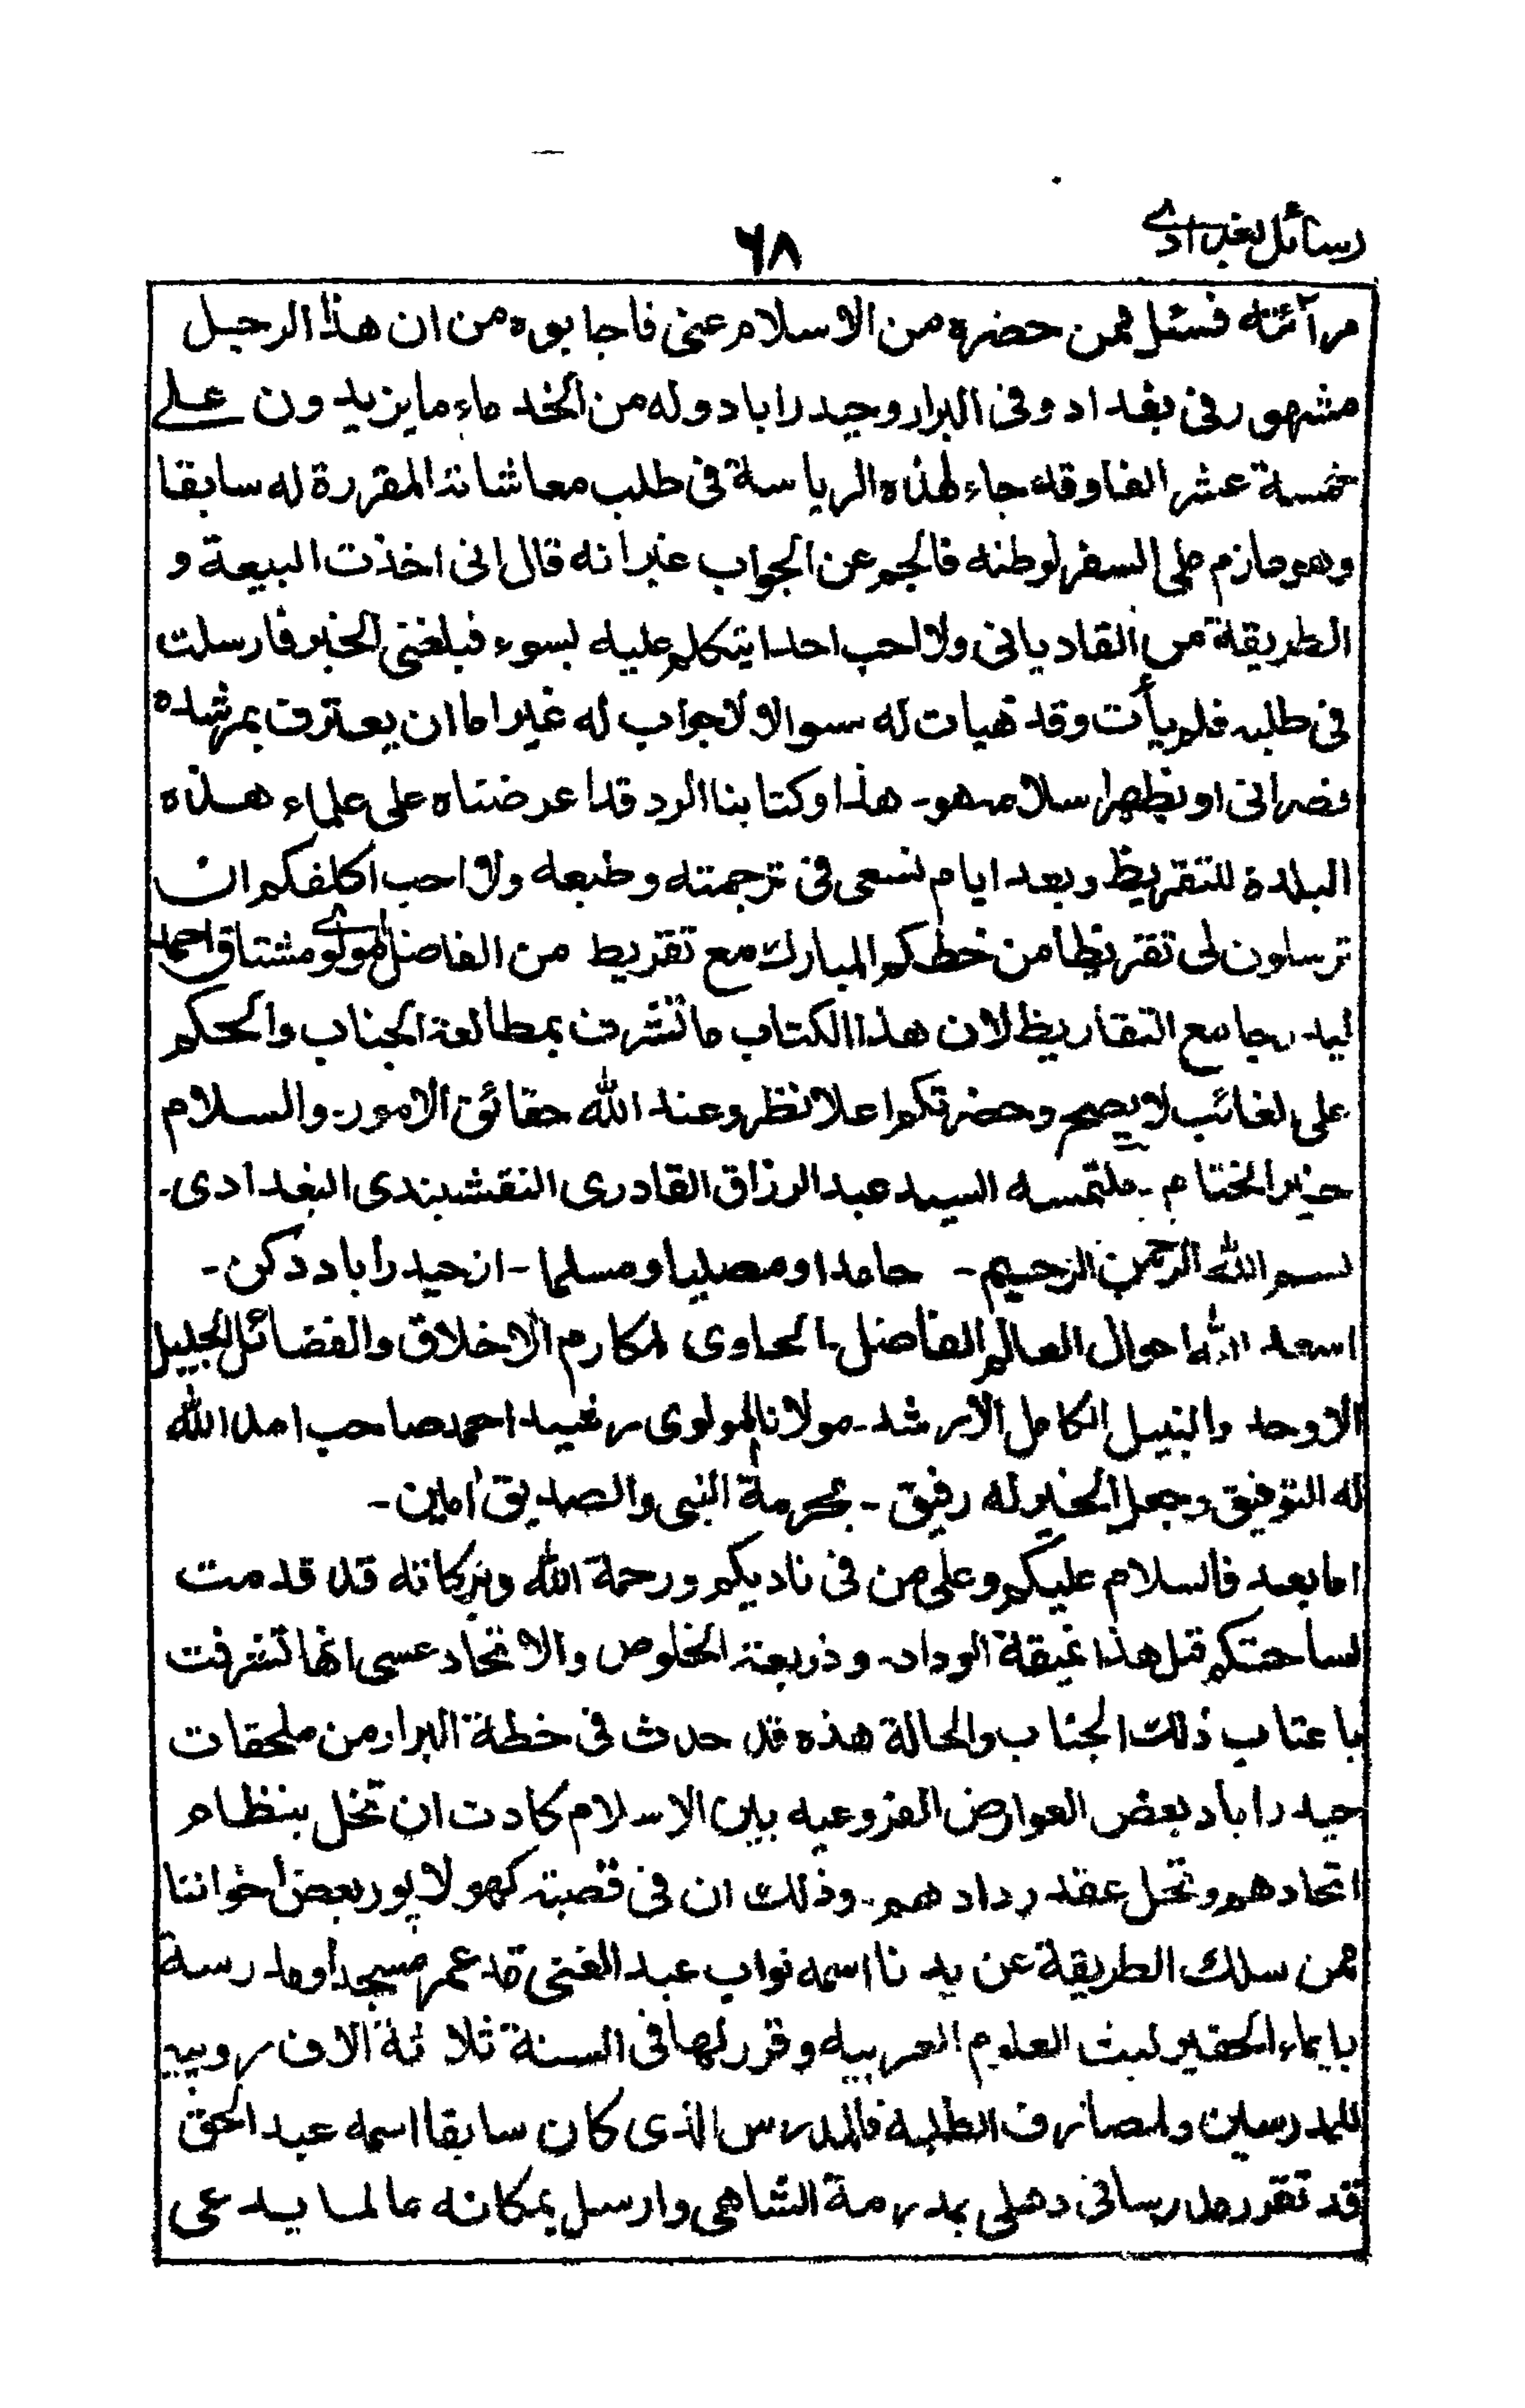 رسائل بغدادی
٦٨
مرآئته فسئل ممن حضره من الاسلام عنی فاجابوه من ان هذا الرجل
مشهور فی بغداد وفی البرار وحیدراباد وله من الخدماء ما یزیدون علے
خمسة عشر الفا وقد جاء لهذه الریاسة فی طلب معاشاته المقررة له سابقا
وهو عازم علی السفر لوطنه فالجم عن الجواب غیر انه قال انی اخذت البیعة و
الطریقة من القادیانی ولا احب احدا یتکلم علیه بسوء فبلغنی الخبر فارسلت
فی طلبه فلم یأت وقد هیات له سوالا ولا جواب له غیر اما ان یعترف بمرشده
نصرانی او یظهر اسلامه هو۔ هذا وکتابنا الرد قد اعرضناه علی علماء هذه
البلدة للتقریظ وبعد ایام نسعی فی ترجمته وطبعه ولا احب اکلفکم ان
ترسلون لی تقریظا من خطکم المبارک مع تقریط من الفاضل المولوی مشتاق احمد
لیدرجا مع التقاریظ لان هذا الکتاب ما تشرف بمطالعة الجناب والحکم
علی لغائب لا یصح وحضرتکم اعلا نظر وعند الله حقائق الامور۔ والسلام
خیر الختام ۔ ملتمسه السید عبد الرزاق القادری النقشبندی البغدادی۔
بسم الله الرحمن الرحیم ۔ حامدا ومصلیا ومسلما ۔ از حیدراباد دکن ۔
اسعد الله احوال العالم الفاضل الحاوی لمکارم الاخلاق والفضائل الجلیل
الاوحد والنبیل الکامل الارشد ۔ مولانا المولوی رشید احمد صاحب امد الله
له التوفیق وجعل الخیر له رفیق ۔ بحرمة النبی والصدیق اٰمین ۔
اما بعد فالسلام علیکم وعلی من فی نادیکم ورحمة الله وبرکاته قد قدمت
لساحتکم قبل هذا نمیقة الوداد۔ وذریعة الخلوص والاتحاد عسی انها تشرفت
باعتاب ذلک الجناب والحالة هذه قد حدث فی خطة البرار من ملحقات
حیدراباد بعض العوارض الفروعیه بین الاسلام کادت ان تخل بنظام
اتحادهم وتحل عقد ودادهم ۔ وذلک ان فی قصبة کهولاپور بعض اخواننا
ممن سلک الطریقة عن یدنا اسمه نواب عبد الغنی قد عمر مسجدا ومدرسة
بایماء الحقیر لبث العلوم العربیه وقرر لها فی السنة ثلاثة الاف روپیه
للمدرسین ولمصارف الطلبه فالمدرس الذی کان سابقا اسمه عبد الحق
قد تقرر مدرسا فی دهلی بمدرسة الشاهی وارسل بمکانه عالما یدعی